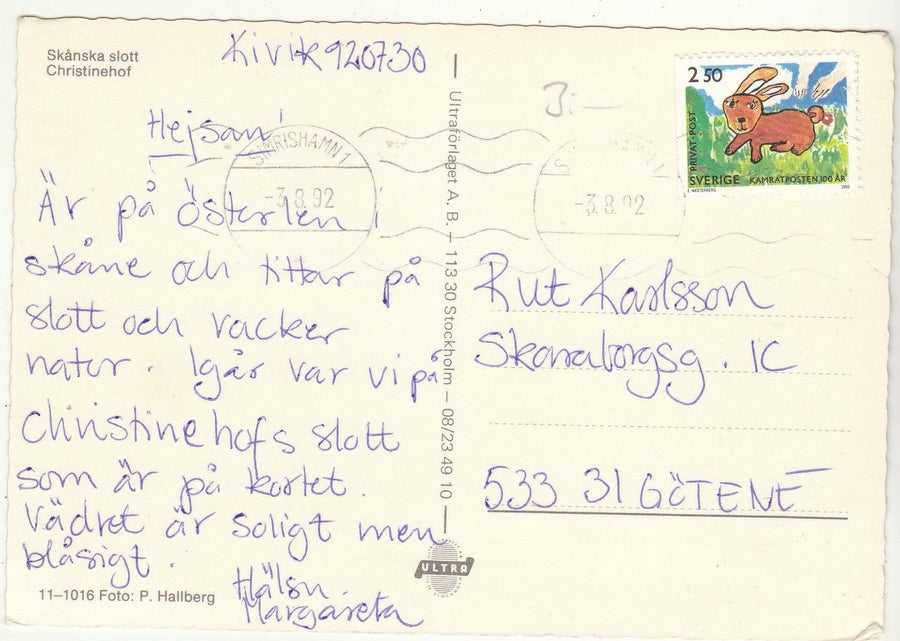 Skånska slott
Christinehof
Kivik 920730
Hejsan!
Är på Österlen i
skåne och tittar på
slott och vacker
natur. Igår var vi på
Christinehofs slott
som är på kortet.
Vädret är soligt men
blåsigt.
Hälsn.
Margareta
11–1016 Foto: P. Hallberg
Ultraförlaget A. B. – 113 30 Stockholm – 08/23 49 10
ULTRA
SIMRISHAMN 1
-3.8.92
-3.8.92
3:-
2 50
PRIVAT·POST
SVERIGE KAMRATPOSTEN 100 ÅR
E. WESTERBERG 1992
Rut Karlsson
Skaraborgsg. 1C
533 31 GÖTENE